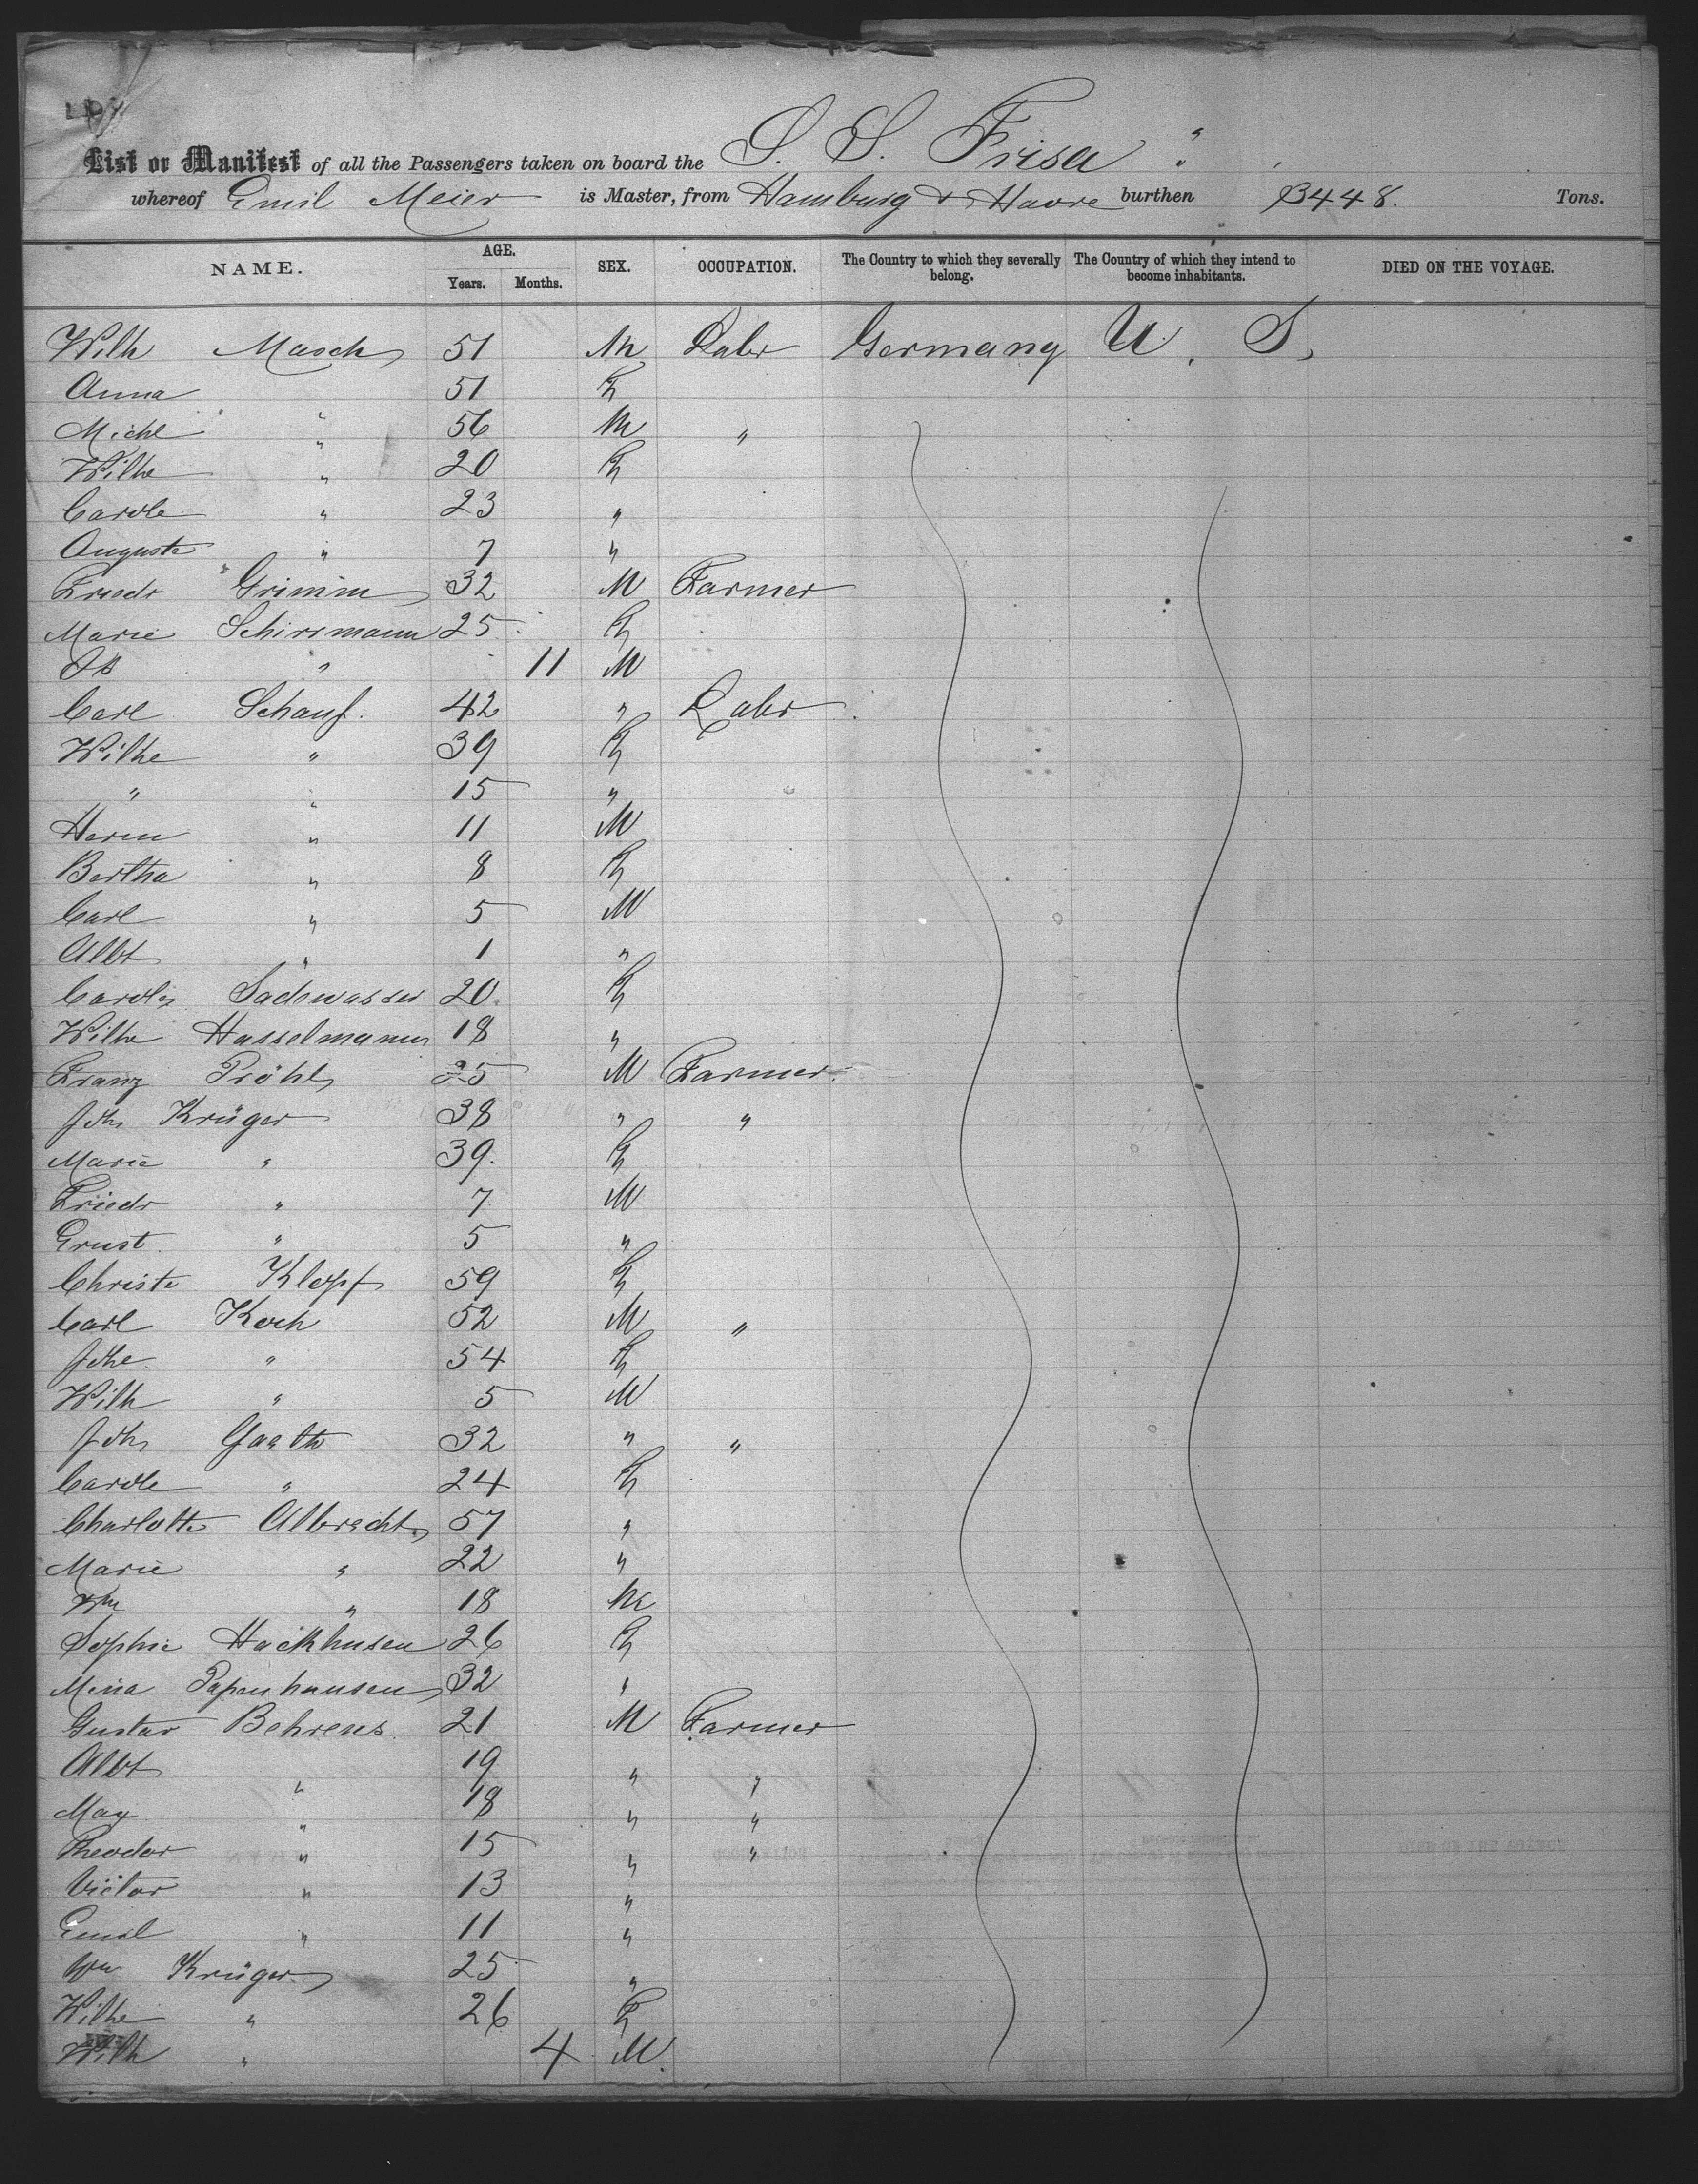 List or Manifest of all the Passengers taken on board the S. S. Frisia
whereof Emil Meier is Master, from Hamburg & Havre burthen 3448. Tons.
NAME. AGE. Years. Months. SEX. OCCUPATION. The Country to which they severally belong. The Country of which they intend to become inhabitants. DIED ON THE VOYAGE.
Wilh Masch 51 M Labr Germany U. S.
Anna 51 F
Michl " 56 M "
Wilhe " 20 F
Carole " 23 "
Auguste " 7 "
Friedr Grimm 32 M Farmer
Marie Schirrmann 25 F
" 11 M
Carl Schauf. 42 " Labr
Wilhe " 39 F
" " 15 "
Herm " 11 M
Bertha " 8 F
Carl " 5 M
Albt " 1 "
Carole Sadewasser 20 F
Wilhe Hasselmann 18 "
Franz Pröhl 25 M Farmer
Joh Krüger 38 " "
Marie " 39. F
Friedr " 7 M
Ernst " 5 "
Christe Klopf 59 F
Carl Koch 52 M "
Johe " 54 F
Wilh " 5 M
Joh Gaeth 32 " "
Carole " 24 F
Charlotte Albrecht 57 "
Marie " 22 "
Wm " 18 M
Sophie Hackhusen 26 F
Mina Papenhausen 32 "
Gustav Behrens 21 M Farmer
Albt " 19 " "
Max " 18 " "
Theodor " 15 " "
Victor " 13 "
Emil " 11 "
Wm Krüger 25 "
Wilhe " 26 F
Wilh " 4 M